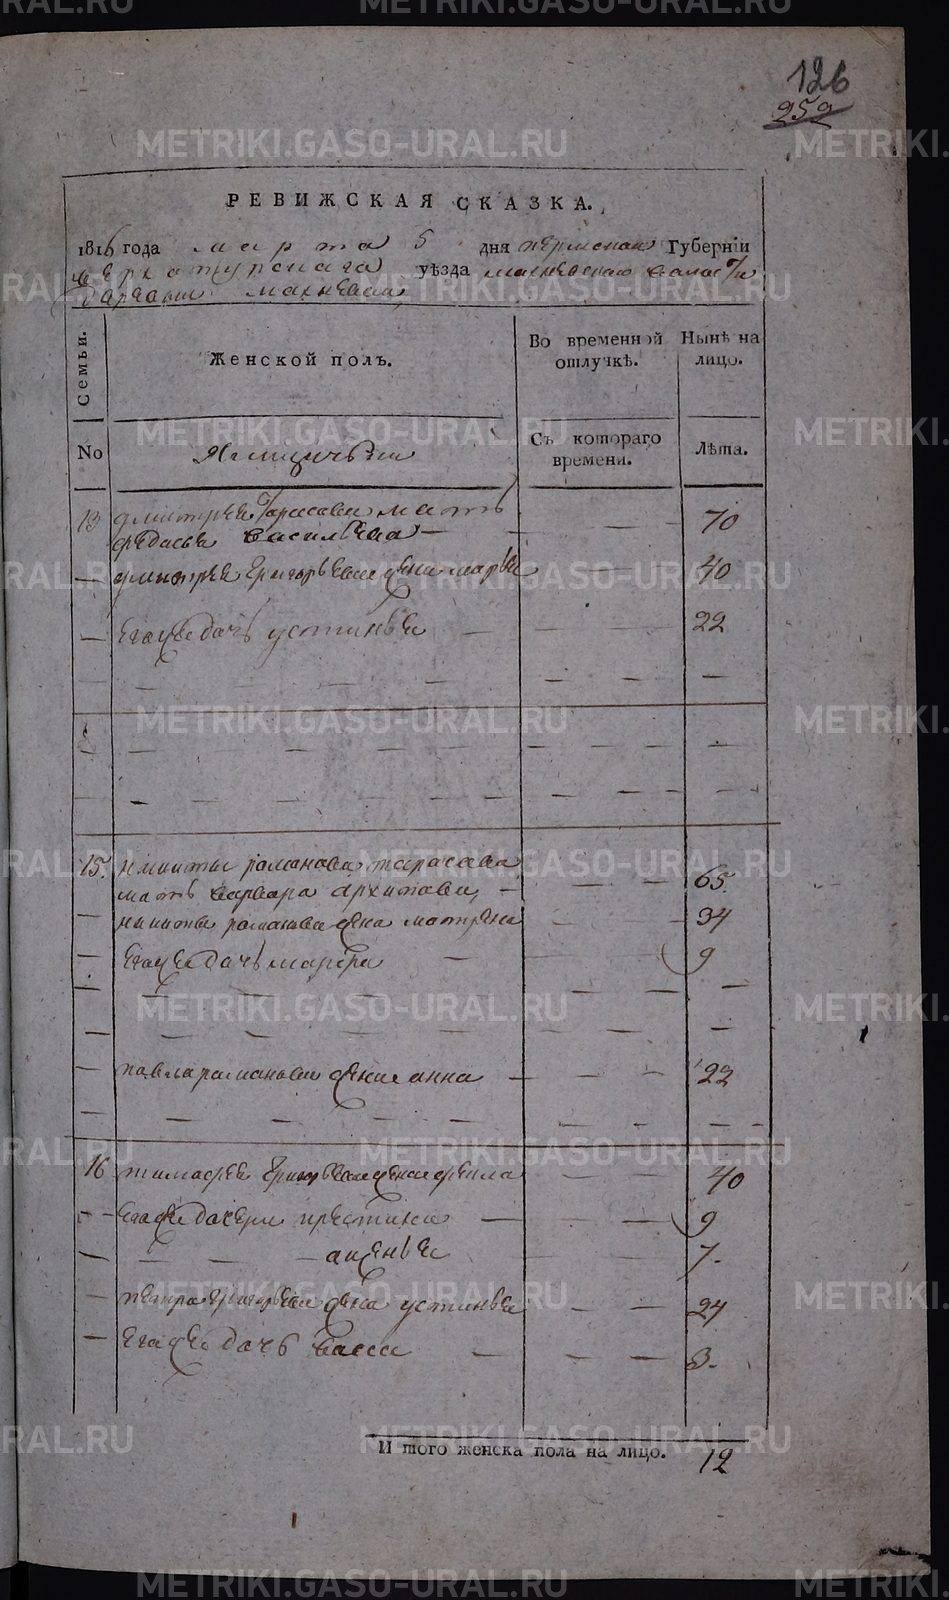 126
252
РЕВИЖСКАЯ СКАЗКА.
1816 года марта 5 дня пермской Губерніи
верхотурскаго уѣзда махневской волости
махневой
Семьи.
Женской полъ.
Во временной отлучкѣ.
Нынѣ на лицо.
No
Съ котораго времени.
Лѣта.
13 дмитрея тарасова мать
федосья васильева — — — 70
— дмитрея григорьева жена марья — — 40
— егожъ дочь устинья — — — 22
15. никиты романова тарасова
мать варвара архипова — — — 65.
— никиты романова жена матрена — — 34
— егожъ дочь марфа — — — 9
— павла романова жена анна — — — 22
16 тимофея григорьева жена фекла — — 40
— егожъ дочери кристина — — — 9
— — — аксенья — — 7.
— петра григорьева жена устинья — — 24
— егожъ дочь васса — — — 3.
И того женска пола на лицо. 12
METRIKI.GASO-URAL.RU